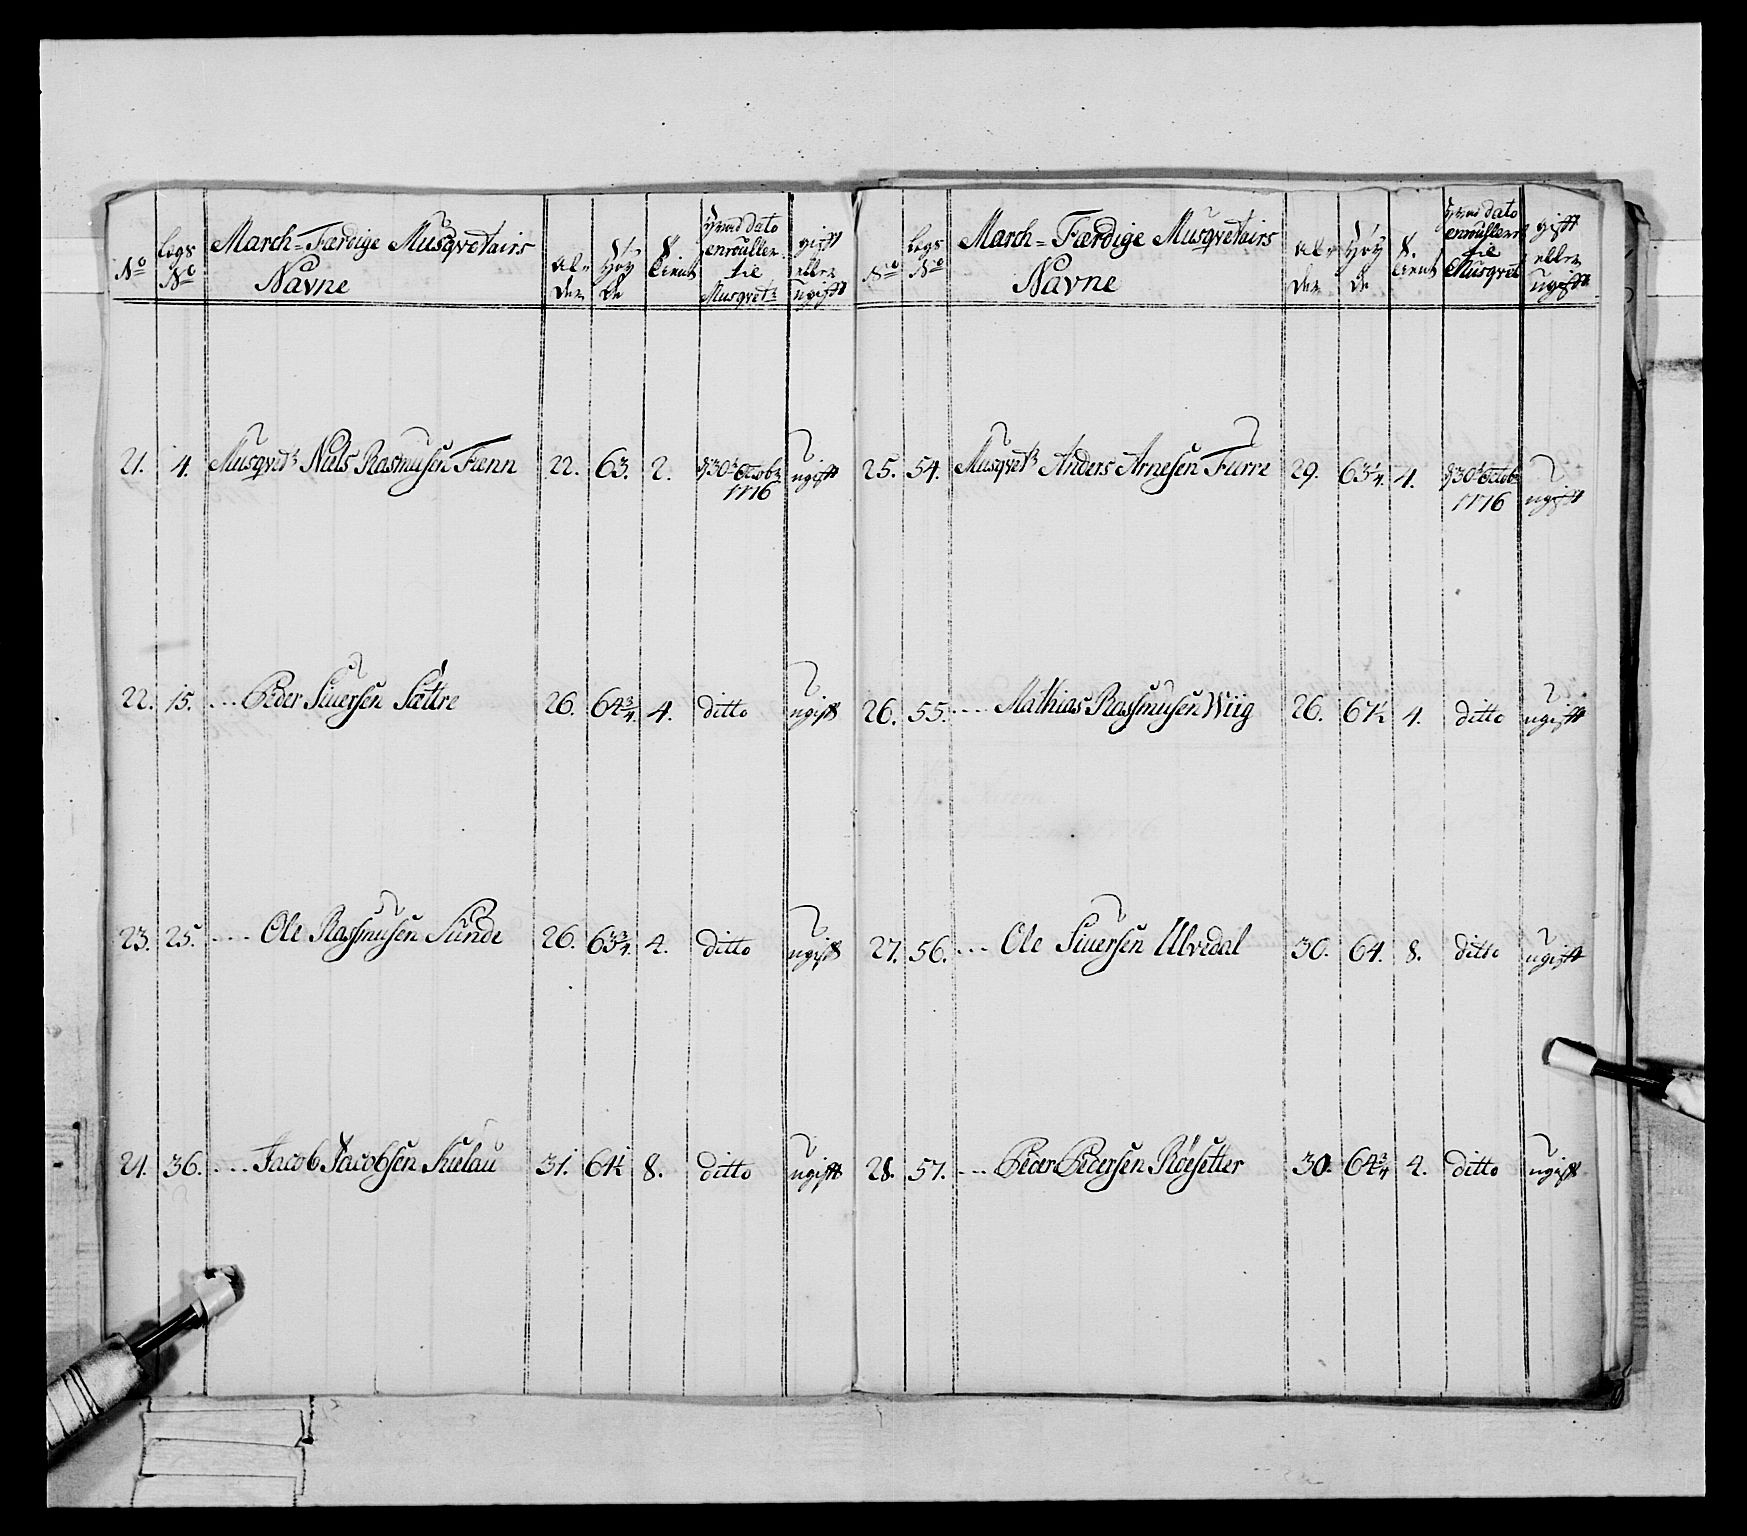 No
Legs No
March-Færdige Musqvetairs
Navne
Al-
der
Høy
de
Tient
Hvad dato
enroulleret
til
Musqvetr
gift
eller
ugift
21. 4. Musqvetr Niels Rasmusen Fienn 22. 63. 2. d 30t Octobr ugift
1776
22. 15. --- Peder Siuersen Sættre 26. 64 3/4. 4. ditto ugift
23. 25. ---- Ole Rassmusen Sunde 26. 63 3/4. 4. ditto ugift
24. 36. ---- Jacob Jacobsen Skielau 31. 64 8. ditto ugift
No
Legs No
March-Færdige Musqvetairs
Navne
Al-
der
Høy
de
Tient
Hvad dato
enroulleret
til
Musqvet
gift
eller
ugift
25. 54. Musqvetr Anders Arnesen Furre 29. 63 1/4. 4. d 30t Octobr
1776 ugift
26. 55. ---- Mathias Rassmusen Wiig 26. 64 4. ditto ugift
27. 56. --- Ole Siuersen Ulvedal 30. 64. 8. ditto ugift
28. 57. --- Peder Pedersen Röesetter 30. 64 3/4 4. ditto ugift